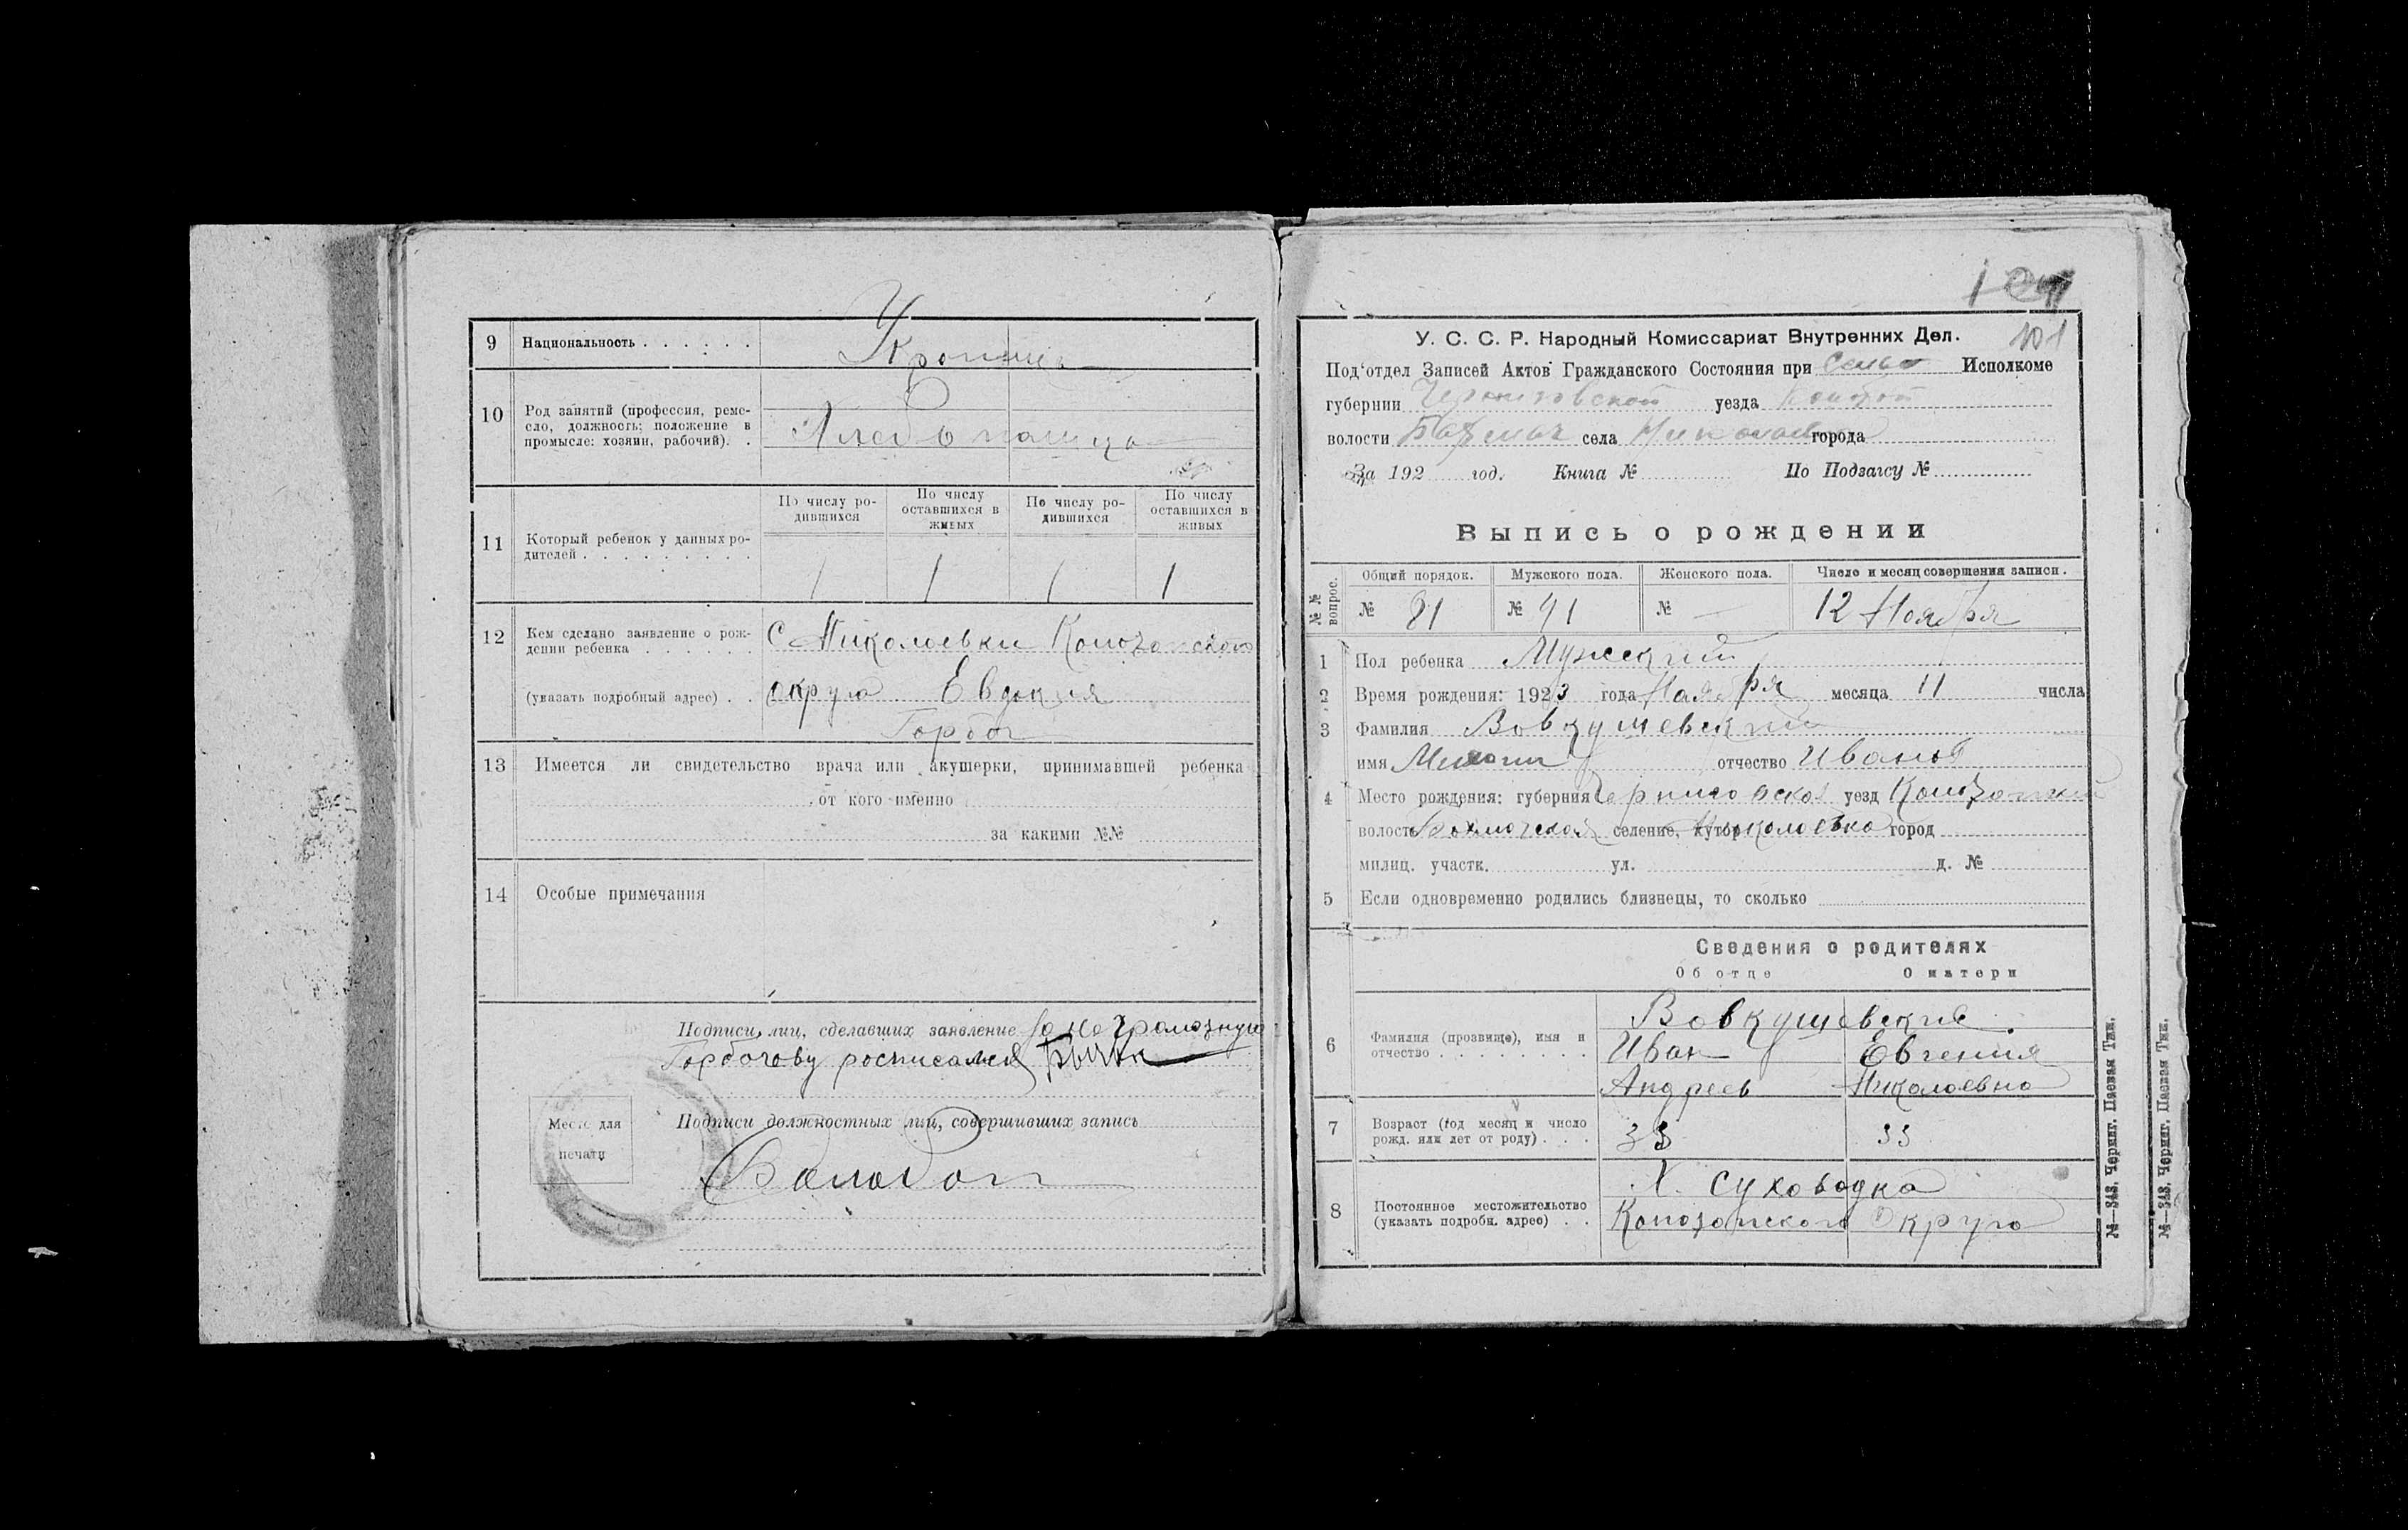 9 Национальность . . . . . .
Украинец
10 Род занятий (профессия, реме-
сло, должность; положение в
промысле: хозяин, рабочий). .
11 Который ребенок у данных ро-
дителей . . . . . . . . .
По числу ро-
дившихся
По числу
оставшихся в
живых
По числу ро-
дившихся
По числу
оставшихся в
живых
1 1 1 1
12 Кем сделано заявление о рож-
дении ребенка . . . . . .
(указать подробный адрес) . .
С Николоевки Конотопского
округа Евдокия
Горбач
13 Имеется ли свидетельство врача или акушерки, принимавшей ребенка
от кого именно
за какими №№
14 Особые примечания
Подписи лиц, сделавших заявление за неграмотную
Горбачеву росписался
Место для
печати
Подписи должностных лиц, совершивших запись
101
У. С. С. Р. Народный Комиссариат Внутренних Дел.
Под'отдел Записей Актов Гражданского Состояния при Исполкоме
губернии Черниговской уезда Конотоп
волости Бахмач села Николаевка города
За 192 год. Книга № По Подзагсу №
Выпись о рождении
№№ вопрос.
Общий порядок. Мужского пола. Женского пола. Число и месяц совершения записи.
№ 81 № 41 № — 12 Ноября
1 Пол ребенка Мужский
2 Время рождения: 1923 года Ноября месяца 11 числа
3 Фамилия Вовкушевский
имя отчество Иванов
4 Место рождения: губерния Черниговская уезд Конотопский
волость Бахмачская селение, хутор Николоевка город
милиц. участк. ул. д. №
5 Если одновременно родились близнецы, то сколько
Сведения о родителях
Об отце О матери
6 Фамилия (прозвище), имя и
отчество . . . . . . . . .
Вовкушевские
Иван Евгения
Андреев Николоевна
7 Возраст (год месяц и число
рожд. или лет от роду) . . .
33 33
8 Постоянное местожительство
(указать подробн. адрес) . .
Х. Суховодка
Конотопского Округа
№—343, Черниг. Паевая Тип.
№—343, Черниг. Паевая Тип.